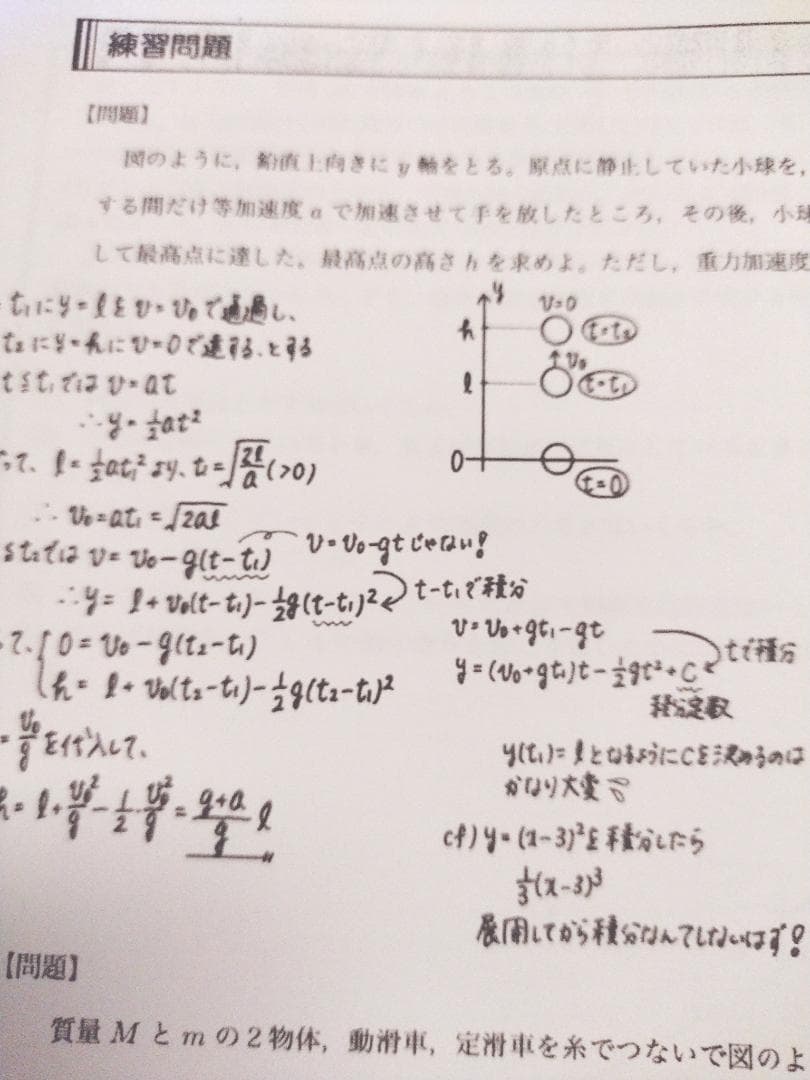 練習問題
【問題】
図のように，鉛直上向きに y 軸をとる。原点に静止していた小球を，
する間だけ等加速度 a で加速させて手を放したところ，その後，小球
して最高点に達した。最高点の高さ h を求めよ。ただし，重力加速度
t₁にy=lをv=v₀で通過し、
t₂にy=hにv=0で達する、とする
t≦t₁では v=at
∴y=½at²
って、l=½at₁²より、t₁=√(2l/a) (>0)
∴ v₀=at₁=√(2al)
≦t₂では v=v₀-g(t-t₁)
v=v₀-gtじゃない!
∴y=l+v₀(t-t₁)-½g(t-t₁)²
t-t₁で積分
って、{0=v₀-g(t₂-t₁)
h=l+v₀(t₂-t₁)-½g(t₂-t₁)²
=v₀/g を代入して、
h=l+v₀²/g-½・v₀²/g=(g+a)/g l
y
h
v=0
t=t₂
v₀
l
t=t₁
0
t=0
v=v₀+gt₁-gt
tで積分
y=(v₀+gt₁)t-½gt²+C
積分定数
y(t₁)=lとなるようにCを決めるのは
かなり大変
cf) y=(x-3)²を積分したら
⅓(x-3)³
展開してから積分なんてしないはず!
【問題】
質量 M と m の2物体，動滑車，定滑車を糸でつないで図のよ